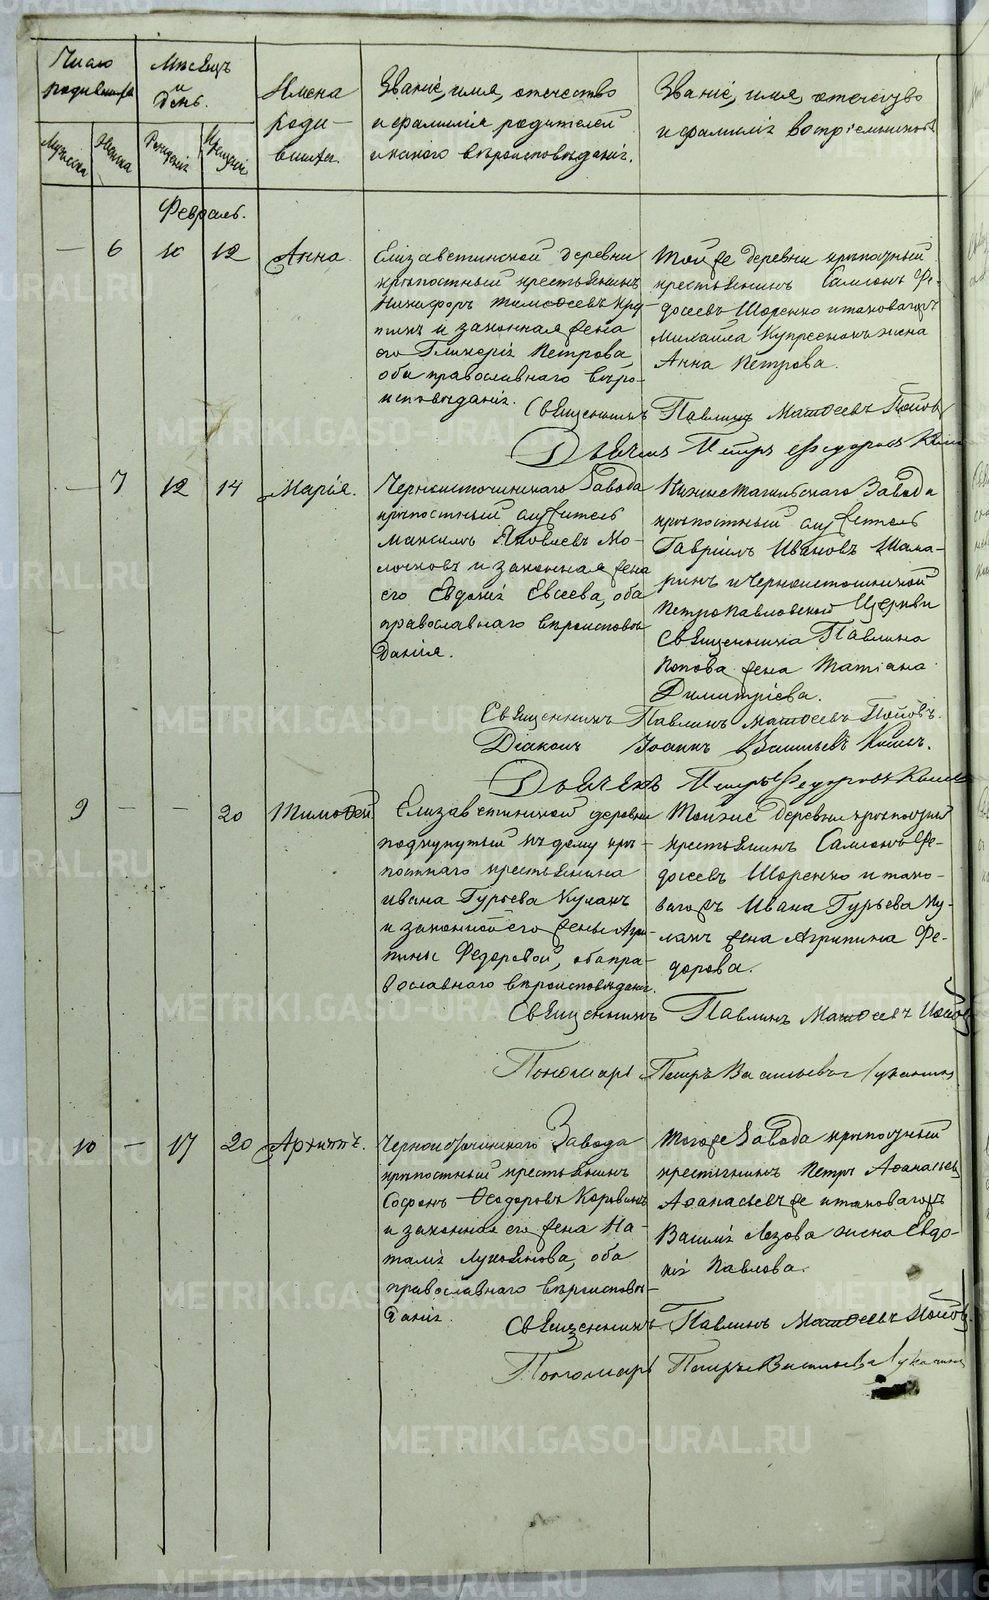 Число родившихся
Мѣсяцъ и день.
Имена родившихся.
Званіе, имя, отечество
и фамилія родителей
и какого вѣроисповѣданія.
Званіе, имя, отечество
и фамилія воспріемниковъ
Мужеска
Женска
Рожденія
Крещенія
Февраль.
— 6 10 12 Анна.
Елизаветинской деревни
крѣпостный крестьянинъ
Никифоръ Тимоѳеевъ
и законная жена
его Гликерія Петрова,
оба православнаго вѣро-
исповѣданія.
Той же деревни крѣпостный
крестьянинъ Самсонъ Ѳе-
досеевъ Шоренко и таковагожъ
Михаила Купреенокъ жена
Анна Петрова.
Священникъ Павлинъ Матѳеевъ Поповъ
Дьячекъ Петръ Федоровъ
— 7 12 14 Марія.
Черноисточинскаго Завода
крѣпостный служитель
Максимъ Яковлевъ Мо-
лочковъ и законная жена
его Евдокія Евсеева, оба
православнаго вѣроисповѣ-
данія.
Нижнетагильскаго Завода
крѣпостный служитель
Гавріилъ Ивановъ Шама-
ринъ и Черноисточинской
Петропавловской Церкви
Священника Павлина
Попова жена Татіана
Димитріева.
Священникъ Павлинъ Матѳеевъ Поповъ.
Діаконъ Іоаннъ Васильевъ
Дьячекъ Петръ Федоровъ
9 — — 20 Тимоѳей.
Елизаветинской деревни
подкунутый къ дому крѣ-
постнаго крестьянина
Ивана Гурьева Кулакъ
и законной его жены Агри-
пины Федоровой, оба пра-
вославнаго вѣроисповѣданія.
Той же деревни крѣпостный
крестьянинъ Самсонъ Ѳе-
досеевъ Шоренко и тако-
вагожъ Ивана Гурьева Ку-
лакъ жена Агрипина Фе-
дорова.
Священникъ Павлинъ Матѳеевъ Поповъ
Пономарь Петръ Васильевъ Луканинъ
10 — 17 20 Архиппъ.
Черноисточинскаго Завода
крѣпостный крестьянинъ
Софонъ Ѳеодоровъ Коровинъ
и законная его жена На-
талія Лукоянова, оба
православнаго вѣроисповѣ-
данія.
Тогоже Завода крѣпостный
крестьянинъ Петръ Аѳанасьевъ
Аѳанасьевъ же и таковагожъ
Василія Лезова жена Евдо-
кія Павлова.
Священникъ Павлинъ Матѳеевъ Поповъ.
Пономарь Петръ Васильевъ Луканинъ
METRIKI.GASO-URAL.RU